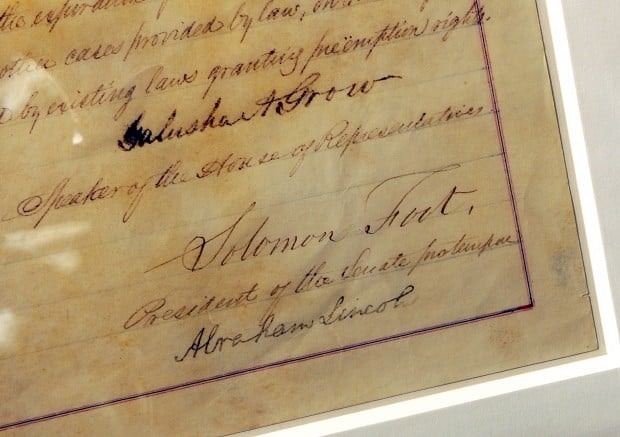 the expiration of
other cases provided by law, on
by existing laws granting preëmption rights.
Galusha A Grow
Speaker of the House of Representatives
Solomon Foot,
President of the Senate protempore
Abraham Lincoln